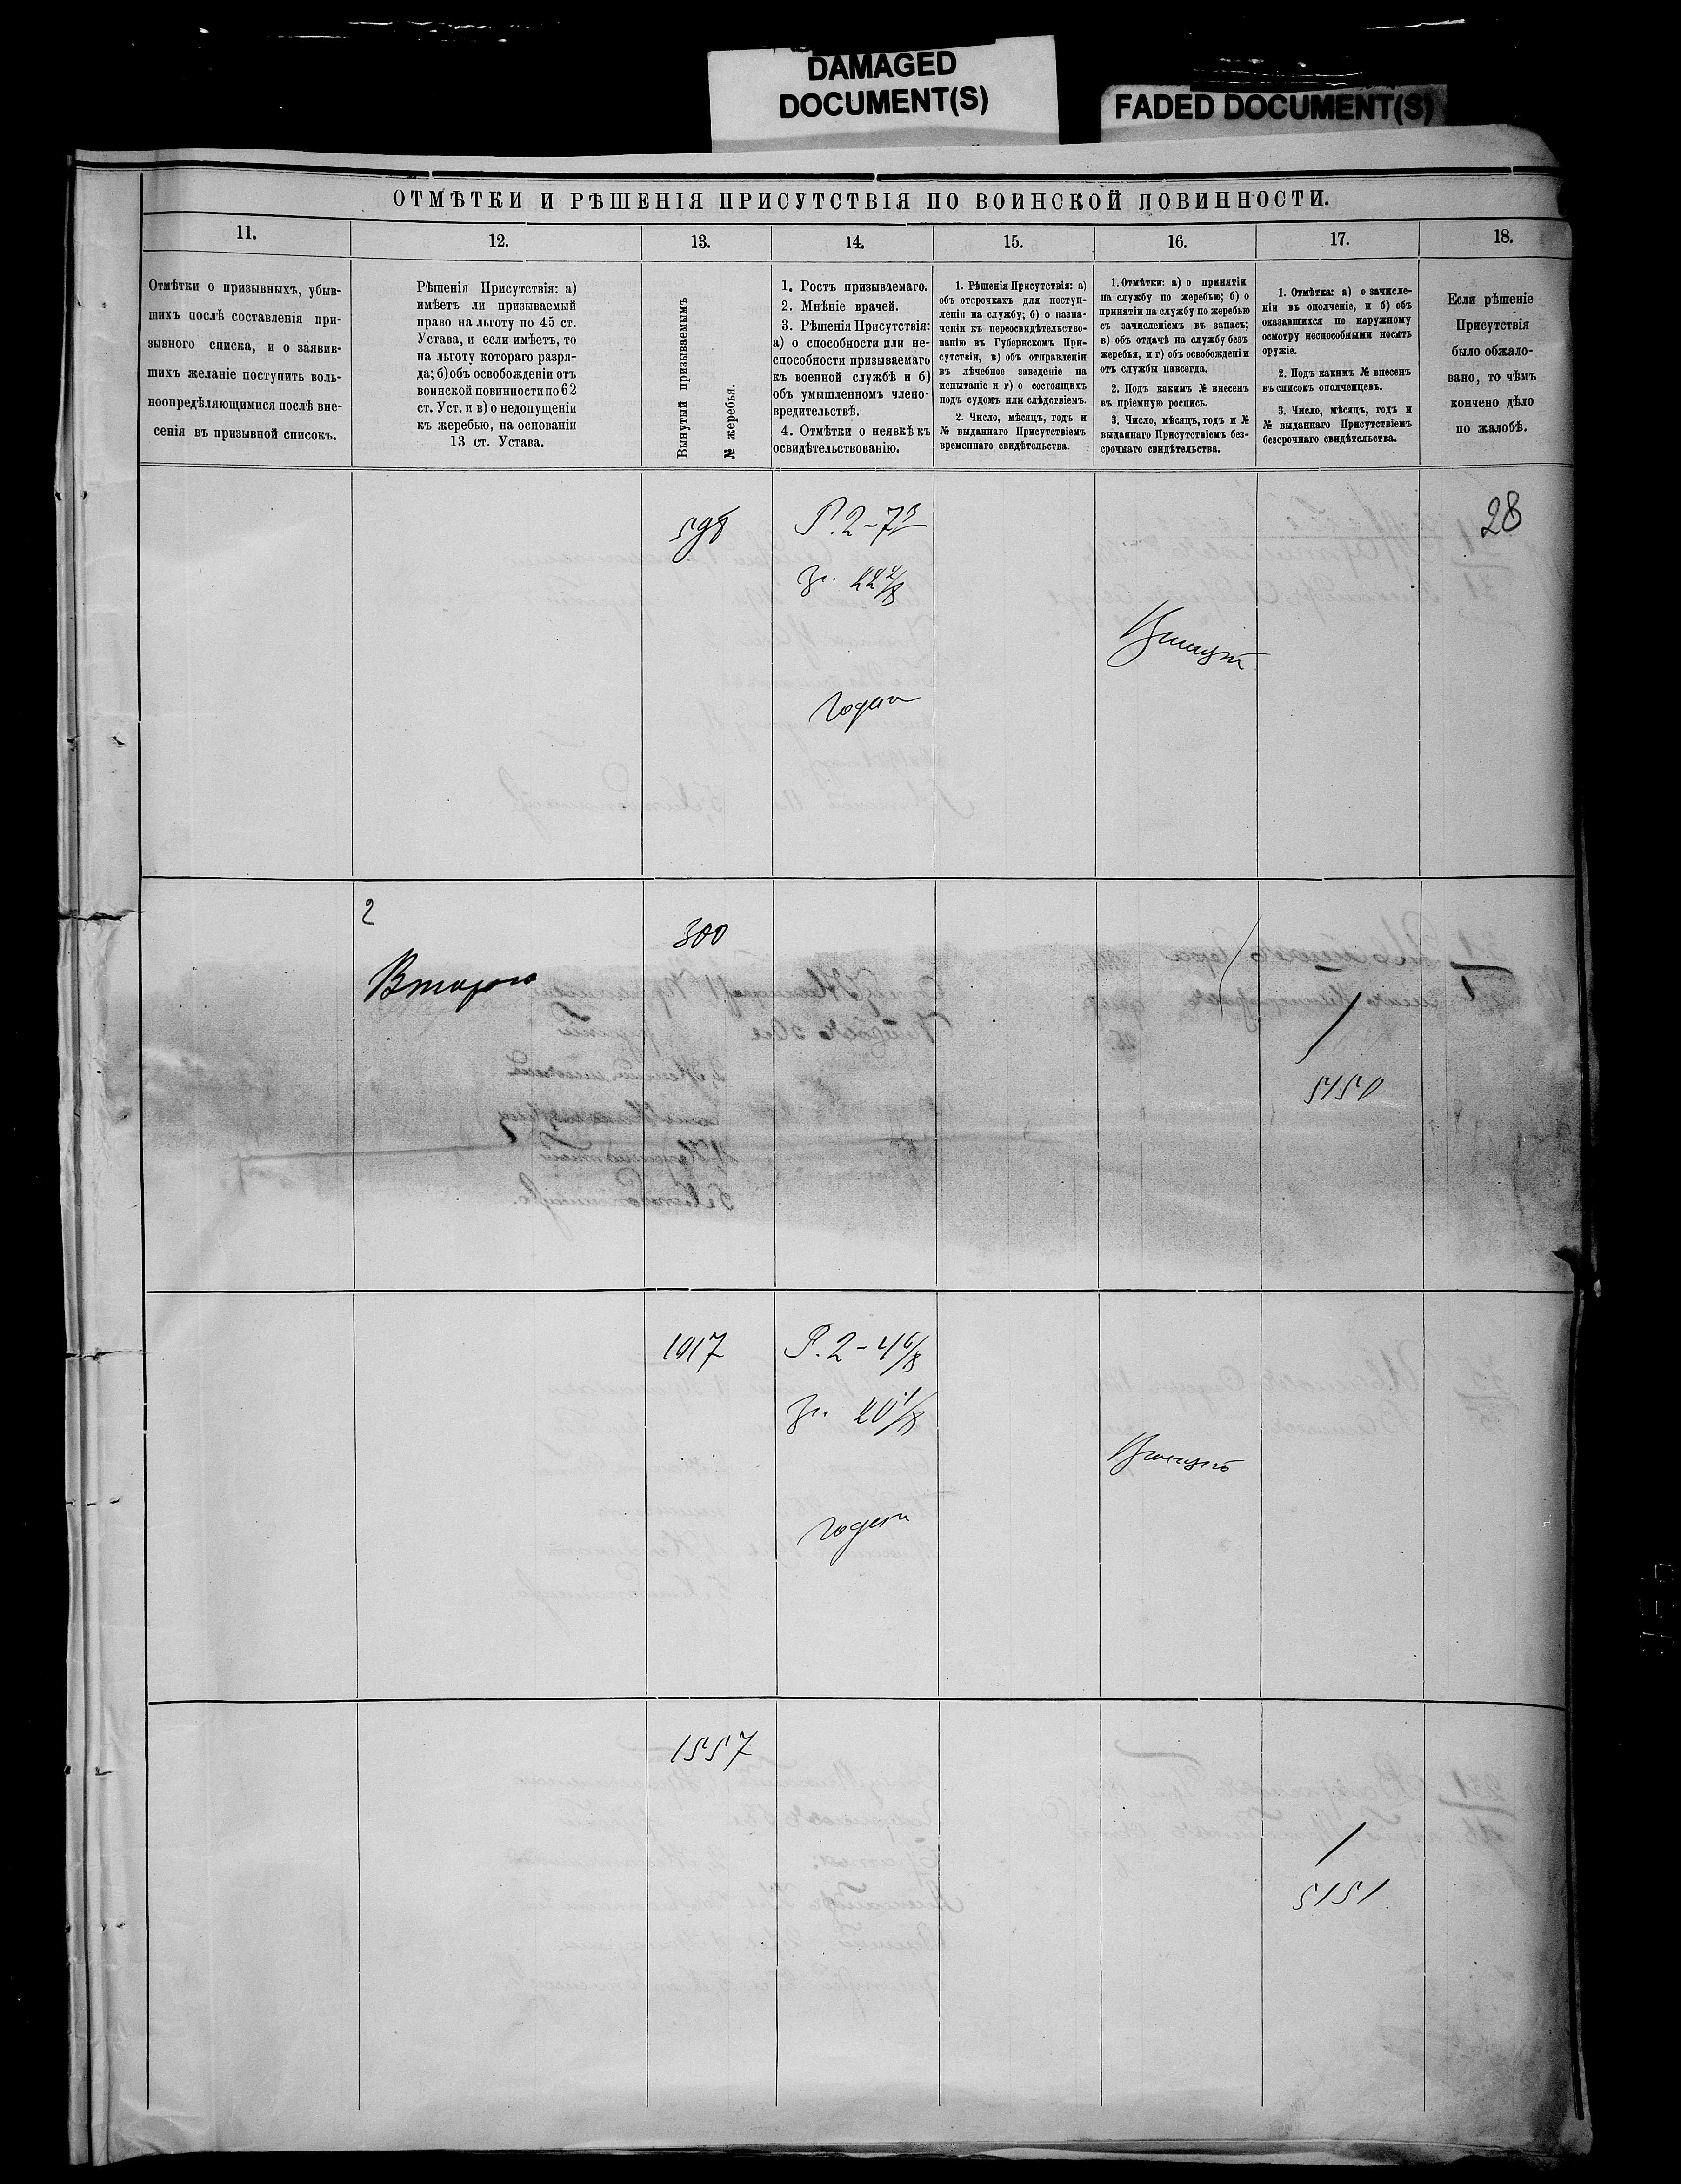 DAMAGED
DOCUMENT(S)
FADED DOCUMENT(S)
ОТМѢТКИ И РѢШЕНІЯ ПРИСУТСТВІЯ ПО ВОИНСКОЙ ПОВИННОСТИ.
11.
12.
13.
14.
15.
16.
17.
18.
Отмѣтки о призывныхъ, убыв-
шихъ послѣ составленія при-
зывного списка, и о заявив-
шихъ желаніе поступить воль-
ноопредѣляющимися послѣ вне-
сенія въ призывной списокъ.
Рѣшенія Присутствія: а)
имѣетъ ли призываемый
право на льготу по 45 ст.
Устава, и если имѣетъ, то
на льготу котораго разря-
да; б) объ освобожденіи отъ
воинской повинности по 62
ст. Уст. и в) о недопущеніи
къ жеребью, на основаніи
13 ст. Устава.
Вынутый призываемымъ
№ жеребья.
1. Ростъ призываемаго.
2. Мнѣніе врачей.
3. Рѣшенія Присутствія:
а) о способности или не-
способности призываемаго
къ военной службѣ и б)
объ умышленномъ члено-
вредительствѣ.
4. Отмѣтки о неявкѣ къ
освидѣтельствованію.
1. Рѣшенія Присутствія: а)
объ отсрочкахъ для поступ-
ленія на службу; б) о назна-
ченіи къ переосвидѣтельство-
ванію въ Губернскомъ При-
сутствіи, в) объ отправленіи
въ лѣчебное заведеніе на
испытаніе и г) о состоящихъ
подъ судомъ или слѣдствіемъ.
2. Число, мѣсяцъ, годъ и
№ выданнаго Присутствіемъ
временнаго свидѣтельства.
1. Отмѣтки: а) о принятіи
на службу по жеребью; б) о
принятіи на службу по жеребью
съ зачисленіемъ въ запасъ;
в) объ отдачѣ на службу безъ
жеребья, и г) объ освобожденіи
отъ службы навсегда.
2. Подъ какимъ № внесенъ
въ пріемную роспись.
3. Число, мѣсяцъ, годъ и №
выданнаго Присутствіемъ без-
срочнаго свидѣтельства.
1. Отмѣтка: а) о зачисле-
ніи въ ополченіе, и б) объ
оказавшихся по наружному
осмотру неспособными носить
оружіе.
2. Подъ какимъ № внесенъ
въ списокъ ополченцевъ.
3. Число, мѣсяцъ, годъ и
№ выданнаго Присутствіемъ
безсрочнаго свидѣтельства.
Если рѣшеніе
Присутствія
было обжало-
вано, то чѣмъ
кончено дѣло
по жалобѣ.
598
Р. 2-7 3/8
28
Зг. 22 4/8
Принятъ
Годенъ
2
300
Втораго
5150
1017
Р. 2-4 6/8
Зг. 20 1/8
Принятъ
Годенъ
1557
5151